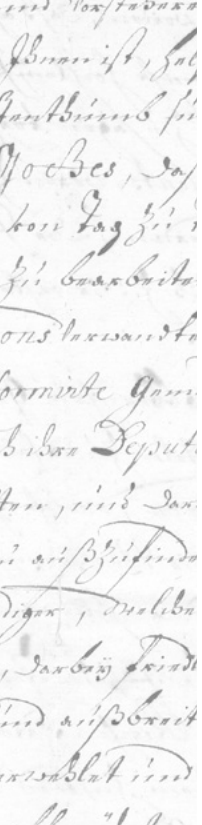 und Vorstehere
Ihnen ist, hel
stenthumb für
Gottes, daß
von Tag zu
zu bearbeite
ons Verwandte
formirte Gem
ch ihre Deput
ten, und dar
zu außzufinde
diger, welche
, darbey fried
und außbreit
erwehlet und